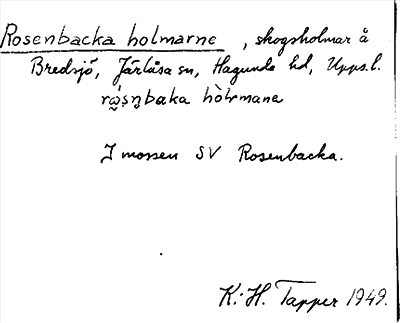 Rosenbacka holmarne, skogsholmar å
Bredsjö, Järlåsa sn, Hagunda hd, Upps. l.
hòlmane
I mossen SV Rosenbacka.
K. H. Tapper 1949.